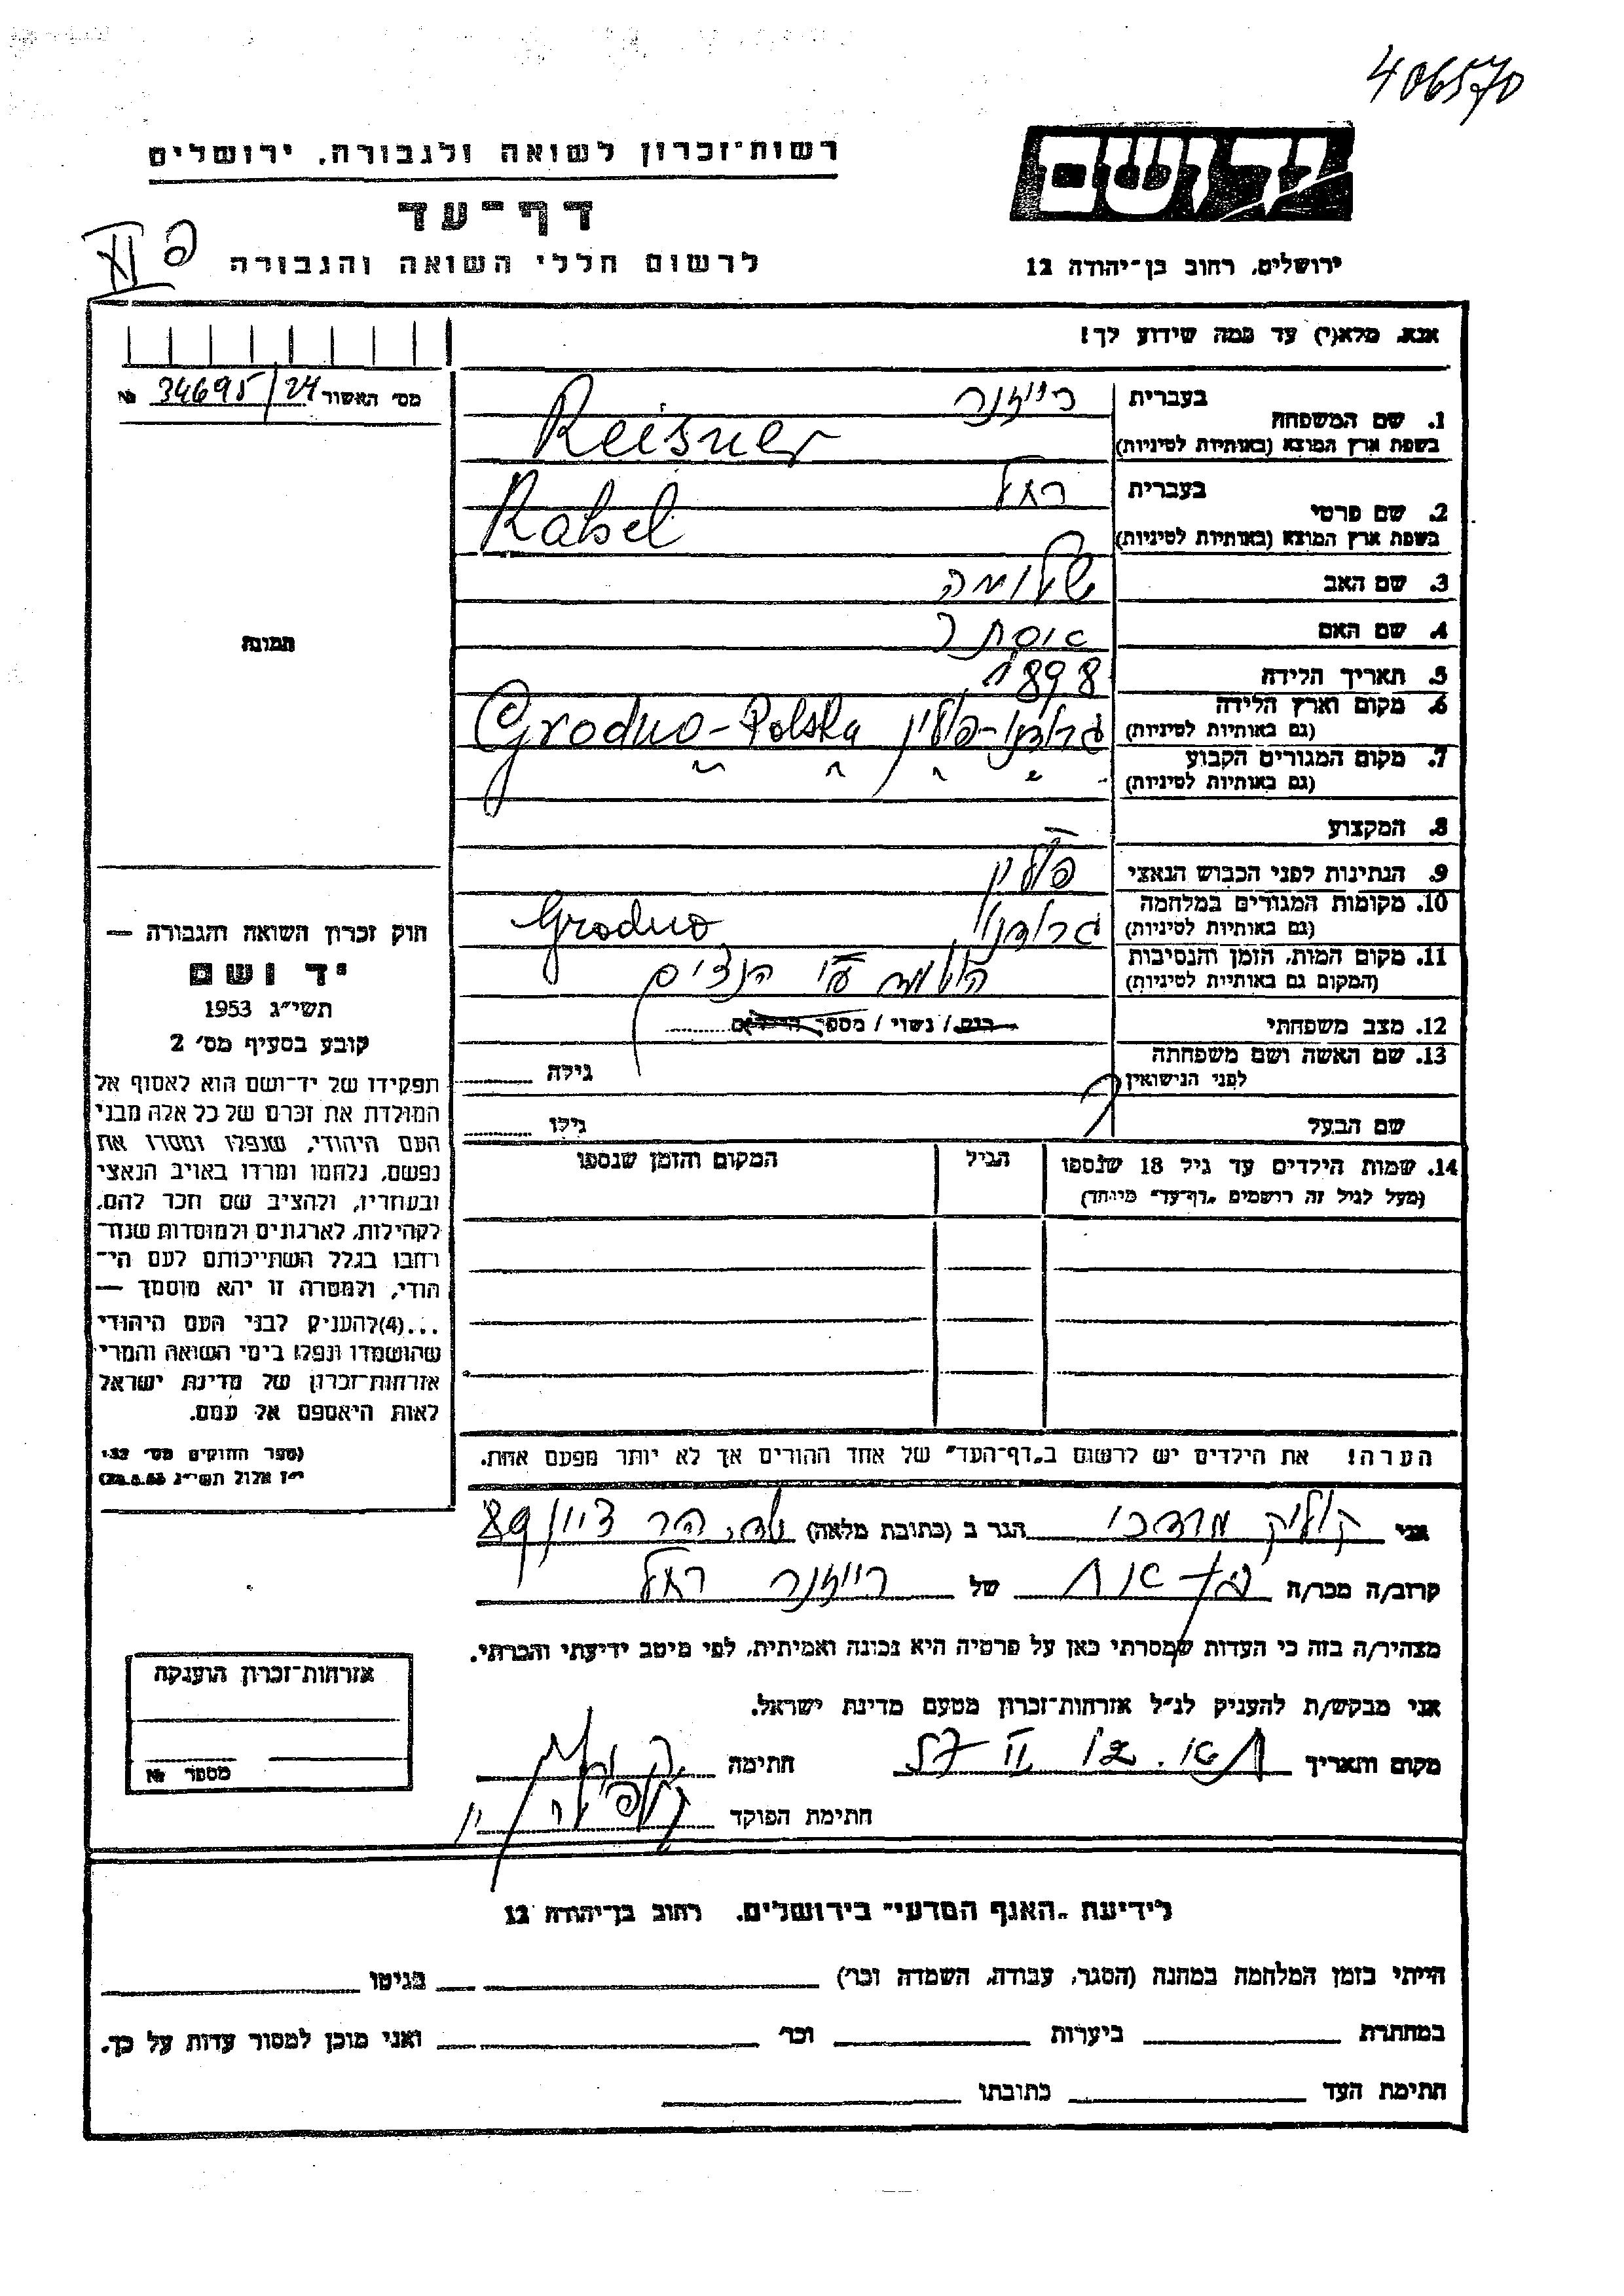 406570
יד ושם
רשות־זכרון לשואה ולגבורה, ירושלים
דף־עד
לרשום חללי השואה והגבורה
ירושלים, רחוב בן־יהודה 12
אנא, מלא(י) עד כמה שידוע לך!
מס׳ האשור 34695/24 №
1. שם המשפחה בעברית רייזנר
בשפת ארץ המוצא (באותיות לטיניות) Reisner
2. שם פרטי בעברית רחל
בשפת ארץ המוצא (באותיות לטיניות) Rahel
3. שם האב שלומה
4. שם האם אסתר
5. תאריך הלידה 1898
6. מקום וארץ הלידה (גם באותיות לטיניות) גרודנו-פולין Grodno-Polska
7. מקום המגורים הקבוע (גם באותיות לטיניות) " " " "
8. המקצוע
9. הנתינות לפני הכבוש הנאצי פולין
10. מקומות המגורים במלחמה (גם באותיות לטיניות) גרודנו Grodno
11. מקום המות, הזמן והנסיבות (המקום גם באותיות לטיניות) ע״י הנצים
12. מצב משפחתי רווק / נשוי / מספר הילדים
13. שם האשה ושם משפחתה לפני הנישואין גילה
שם הבעל גילו
14. שמות הילדים עד גיל 18 שנספו הגיל המקום והזמן שנספו
(מעל לגיל זה רושמים „דף־עד״ מיוחד)
הערה! את הילדים יש לרשום ב„דף־העד״ של אחד ההורים אך לא יותר מפעם אחת.
תמונה
חוק זכרון השואה והגבורה —
יד ושם
תשי״ג 1953
קובע בסעיף מס׳ 2
תפקידו של יד־ושם הוא לאסוף אל
המולדת את זכרם של כל אלה מבני
העם היהודי, שנפלו ומסרו את
נפשם, נלחמו ומרדו באויב הנאצי
ובעוזריו, ולהציב שם וזכר להם,
לקהילות, לארגונים ולמוסדות שנח־
רבו בגלל השתייכותם לעם הי־
הודי, ולמטרה זו יהא מוסמך —
...(4) להעניק לבני העם היהודי
שהושמדו ונפלו בימי השואה והמרי
אזרחות־זכרון של מדינת ישראל
לאות היאספם אל עמם.
(ספר החוקים מס׳ 132
י״ז אלול תשי״ג 28.8.53)
אני קוליק מרדכי הגר ב (כתובת מלאה) הר ציון 89
קרוב/ה מכר/ה בת-אחות של רייזנר רחל
מצהיר/ה בזה כי העדות שמסרתי כאן על פרטיה היא נכונה ואמיתית, לפי מיטב ידיעתי והכרתי.
אני מבקש/ת להעניק לנ״ל אזרחות־זכרון מטעם מדינת ישראל.
מקום ותאריך חתימה
חתימת הפוקד
אזרחות־זכרון הוענקה
מספר №
לידיעת „האגף המדעי״ בירושלים, רחוב בן־יהודה 12
הייתי בזמן המלחמה במחנה (הסגר, עבודה, השמדה וכו׳) בגיטו
במחתרת ביערות וכו׳ ואני מוכן למסור עדות על כך.
חתימת העד כתובתו